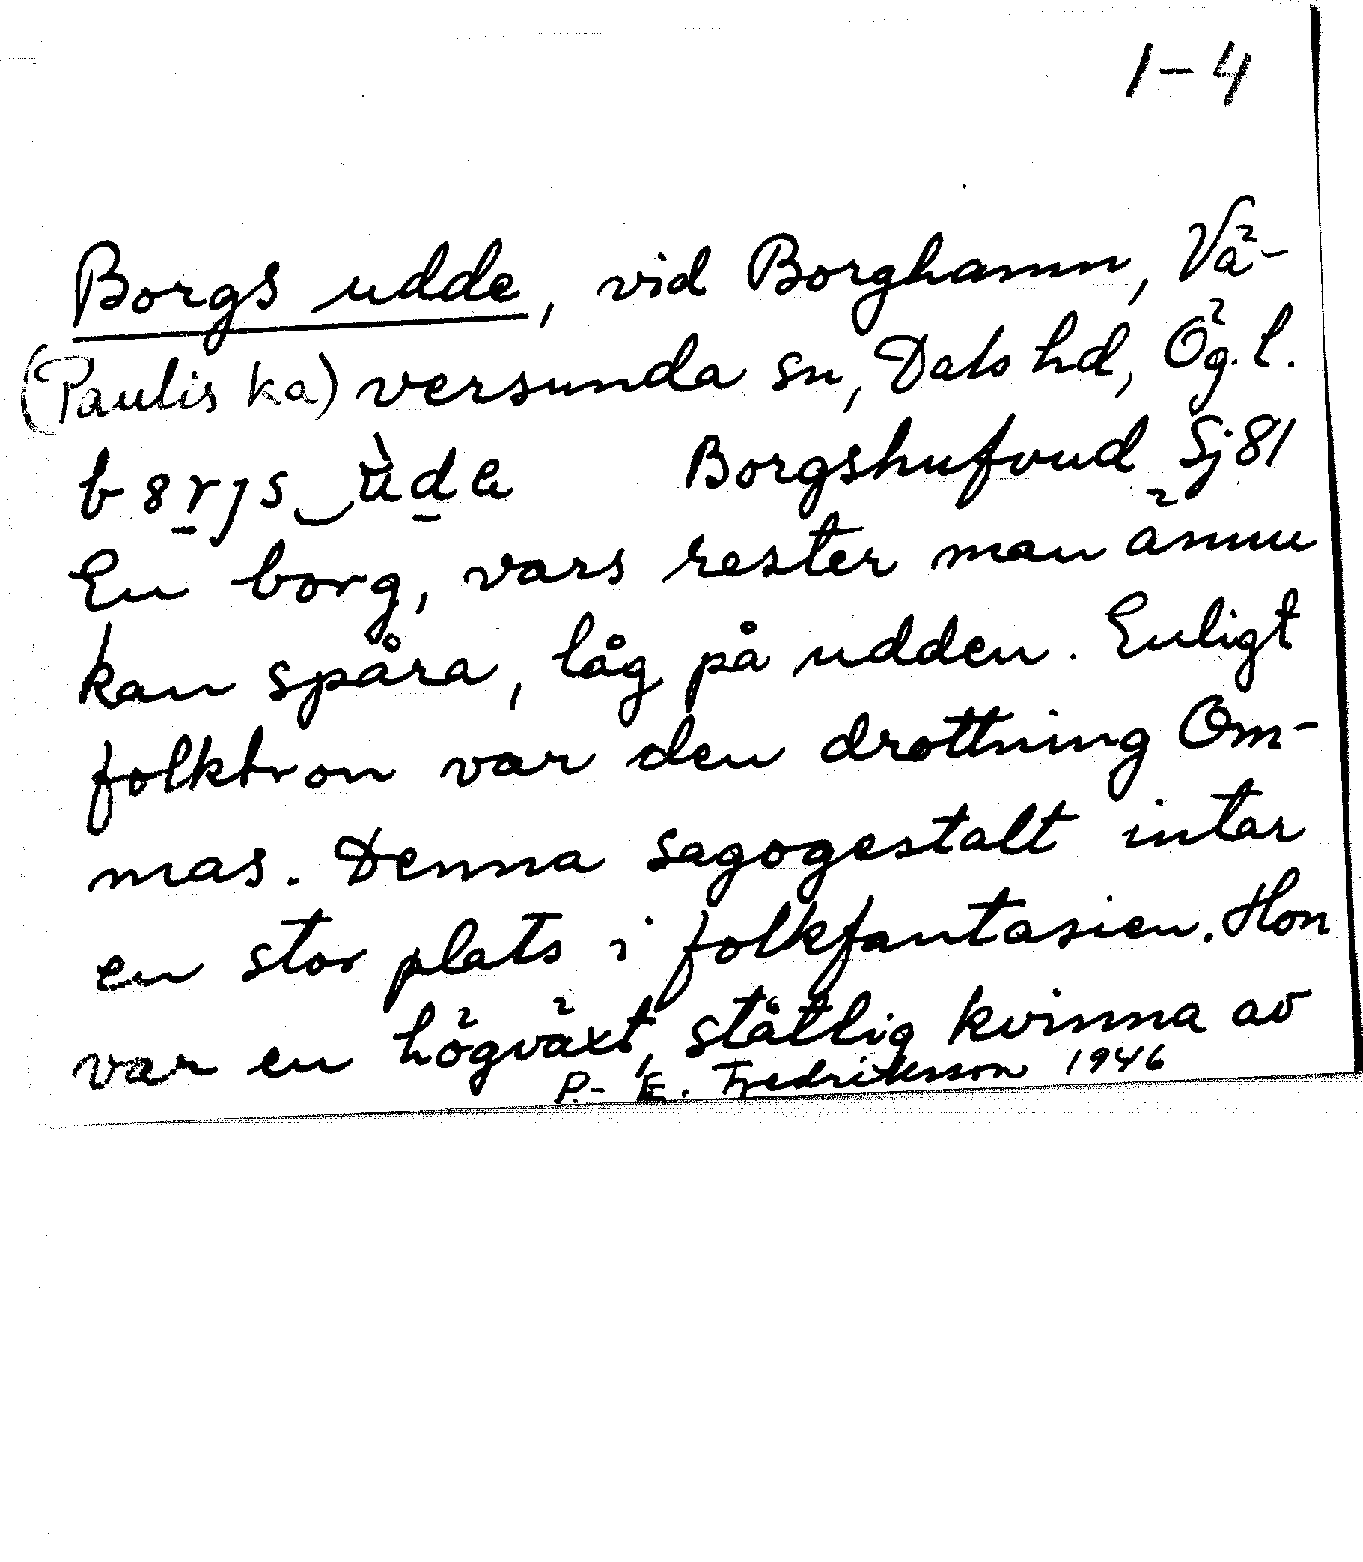 1-4
Borgs udde, vid Borghamn, Vä-
(Paulis ka) versunda sn, Dals hd, Ög. l.
Borgshufvud Sj 81
En borg, vars rester man ännu
kan spåra, låg på udden. Enligt
folktron var den drottning Om-
mas. Denna sagogestalt intar
en stor plats i folkfantasien. Hon
var en högväxt, ståtlig kvinna av
P.-E. Fredriksson 1946